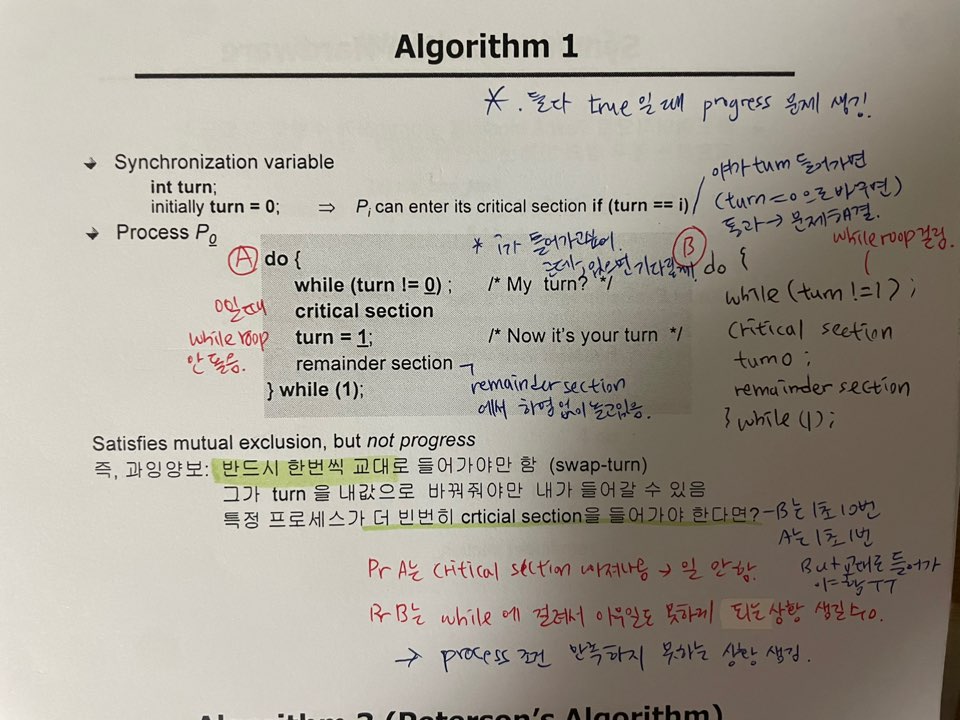 Algorithm 1
* . 둘다 true 일때 progress 문제 생김.
Synchronization variable
int turn;
initially turn = 0; ⇒ Pi can enter its critical section if (turn == i)
야가 turn 들어가면
(turn=0으로바꾸면)
통과→ 문제해결.
Process P0
* i가 들어가고싶어.
근데, 있으면 기다릴께.
while roop 걸림.
A
do {
while (turn != 0) ; /* My turn? */
critical section
turn = 1; /* Now it's your turn */
remainder section
} while (1);
0일때
while roop
안 돌음.
remainder section
에서 하염없이 놀고있음.
B
do {
while (turn !=1) ;
Critical section
turn 0 ;
remainder section
} while (1);
Satisfies mutual exclusion, but not progress
즉, 과잉양보: 반드시 한번씩 교대로 들어가야만 함 (swap-turn)
그가 turn 을 내값으로 바꿔줘야만 내가 들어갈 수 있음
특정 프로세스가 더 빈번히 crticial section을 들어가야 한다면?
-B는 1초 10번
A는 1초 1번
But 교대로 들어가
야함 ㅜㅜ
Pr A는 Critical section 빠져나옴 → 일 안함.
Pr B는 while 에 걸려서 아무일도 못하게 되는 상황 생길수o.
→ process 조건 만족하지 못하는 상황 생김.
Algorithm 2 (Peterson's Algorithm)